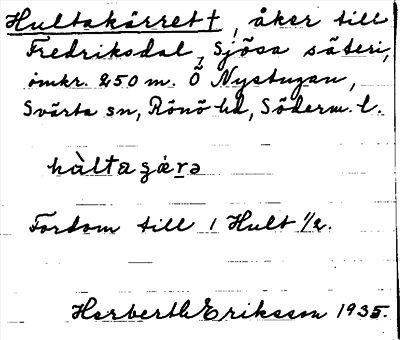 Hultakärret †, åker till
Fredriksdal, Sjösa säteri,
omkr. 250 m. Ö Nystugan,
Svärta sn, Rönö hd, Söderm. l.
Fordom till 1 Hult 1/2.
Herbert Eriksson 1935.